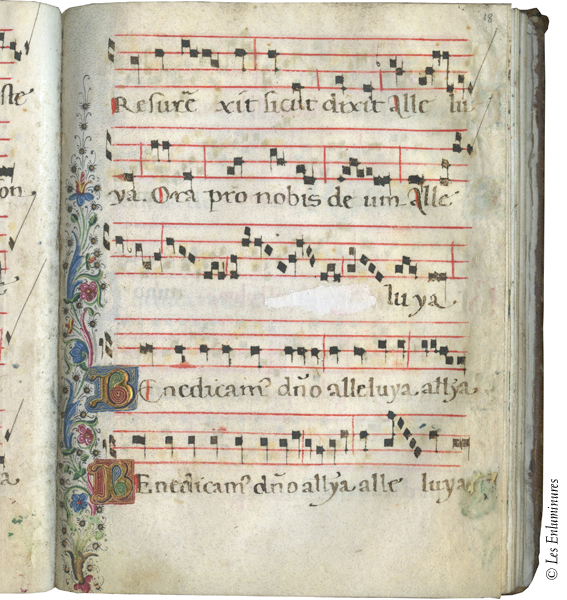 18
Resurr̄e xit sicut dixit Alle lu
ya. Ora pro nobis de um Alle
lu ya
Benedicam⁹ dn̄o alleluya all'ya
Benedicam⁹ dn̄o all'ya alle luya
© Les Enluminures